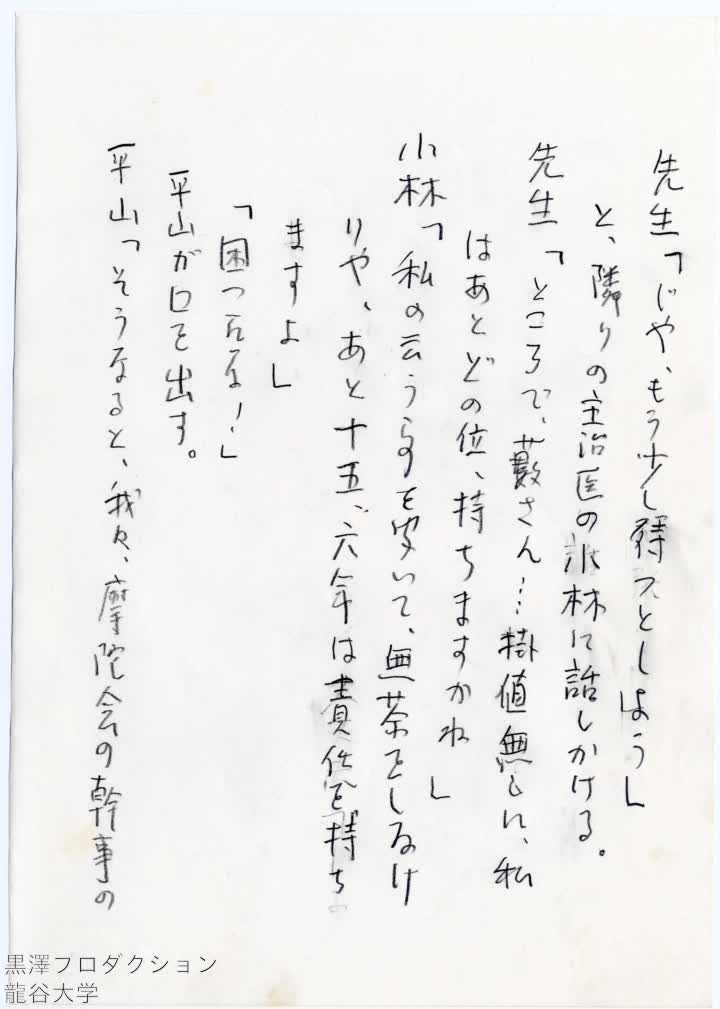 先生「じや、もう少し待つとしよう」
と、隣りの主治医の小林に話しかける。
先生「ところで、藪さん…掛値無しに、私
はあとどの位、持ちますかね」
小林「私の云う事を聞いて、無茶をしなけ
りや、あと十五、六年は責任を持ち
ますよ」
「困つたな！」
平山が口を出す。
平山「そうなると、我々、摩陀会の幹事の
黒澤プロダクション
龍谷大学